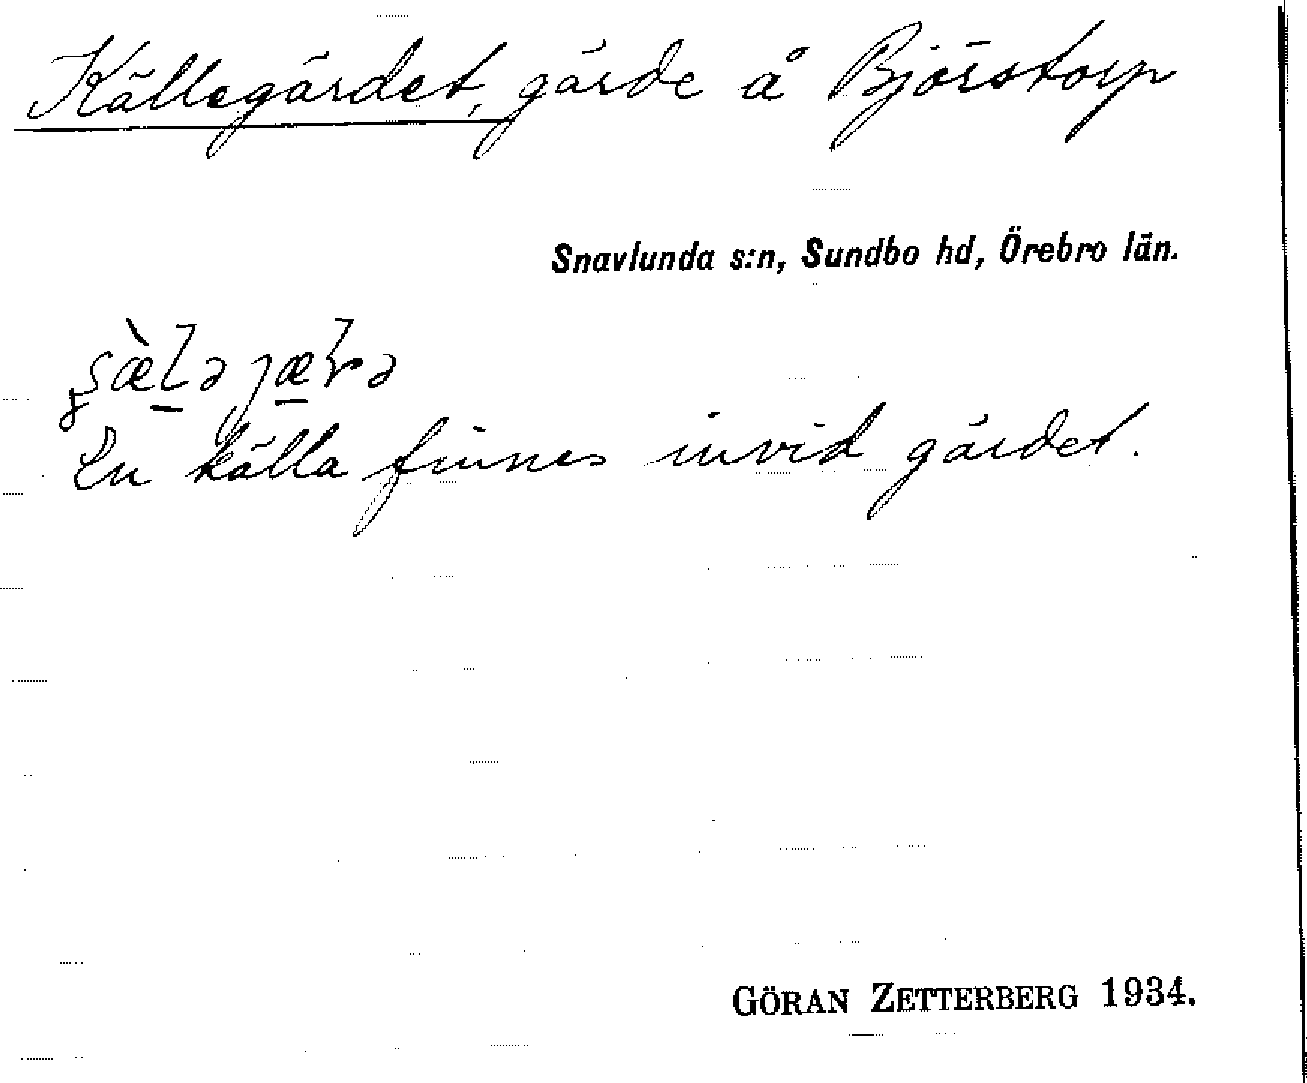 Källegärdet, gärde å Björstorp
Snavlunda s:n, Sundbo hd, Örebro län.
En källa finnes invid gärdet.
GÖRAN ZETTERBERG 1934.